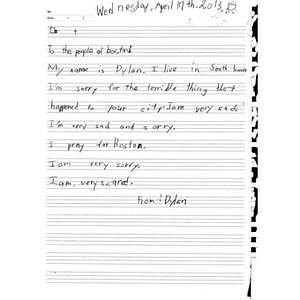 Wednesday, April 17th. 2013,
To the people of boston
My name is Dylan. I live in South Korea
I'm sorry for the terrible thing that
happened to your city. I am very sad.
I'm very sad and sorry.
I pray for Boston.
I am very sorry.
I am, very scared.
From: Dylan